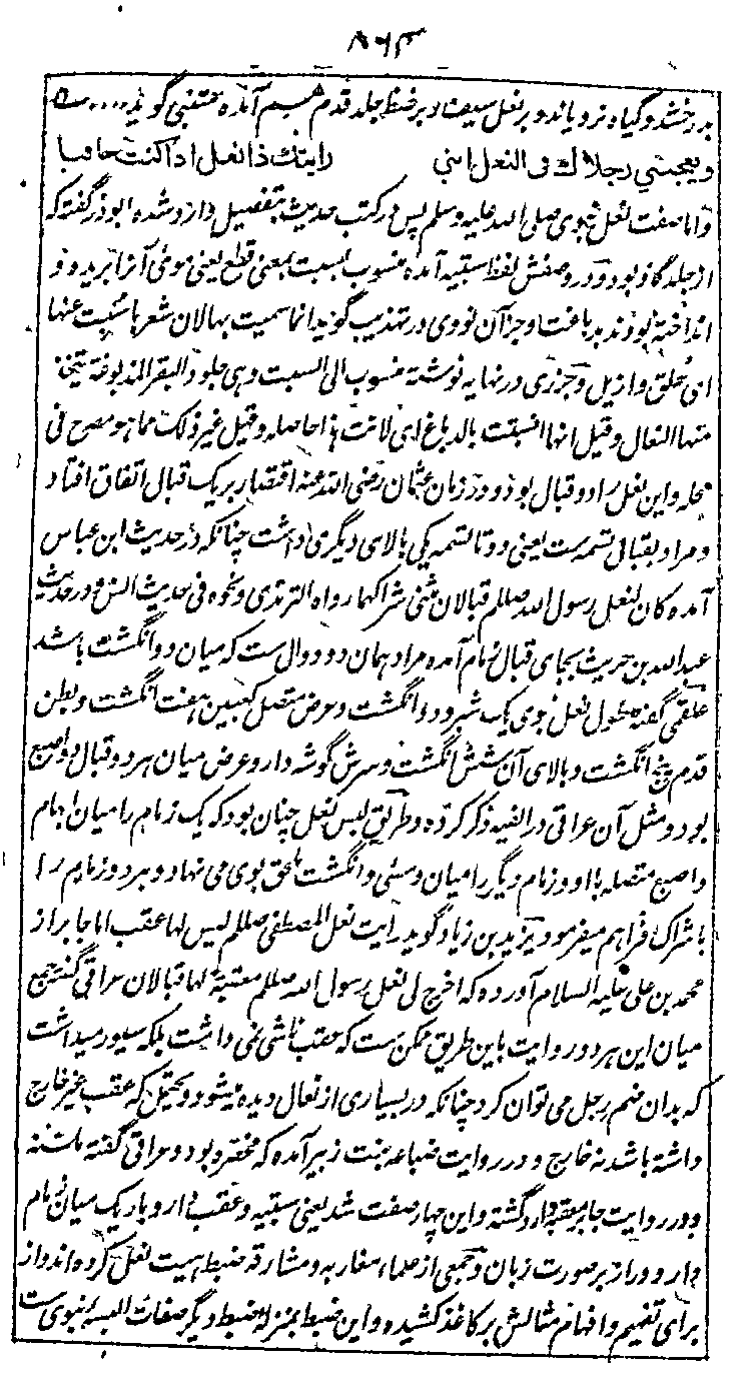 ۸۶۳
بدرخشد و گیاه نرویاند و بر نعل سیف و بر ضظ جلد قدم هم آمده متنبی گوید
ويعجبني رجلاك في النعل انني رايتك ذا نعل اذا كنت حافيا
و اما صفت نعل نبوی صلی الله علیه وسلم پس در کتب حدیث بتفصیل وارد شده ابوذر گفته که
از جلد گاو بود و در وصفش لفظ سبتیه آمده منسوب بسبت بمعنی قطع یعنی موی آنرا بریده و
انداخته بودند بدباغت و جز آن نووی در تهذیب گوید انما سمیت بها لان شعرها سبت عنها
ای حلق و ازیل و جزری در نهایه نوشته منسوب الی السبت وهی جلود البقر المدبوغة یتخذ
منها النعال وقیل انها انسبتت بالدباغ ای لانت هذا حاصله وقیل غیر ذلک مما هو مصرح فی
محله و این نعل را دو قبال بود و در زمان عثمان رضی الله عنه اقتصار بر یک قبال اتفاق افتاد
و مراد بقبال تسمه ست یعنی دو تا تسمه یکی بالای دیگری داشت چنانکه در حدیث ابن عباس
آمده کان لنعل رسول الله صللم قبالان مثنی شراکهما رواه الترمذی و نحوه فی حدیث انس و در حدیث
عبدالله بن حریث بجای قبال زمام آمده مراد همان دو دوال ست که میان دو انگشت باشد
علقمی گفته طول نعل نبوی یک شبر و دو انگشت و عرض متصل کعبین هفت انگشت و بطن
قدم پنج انگشت و بالای آن شش انگشت و سرش گوشه دار و عرض میان هر دو قبال دو اصبع
بود و مثل آن عراقی در الفیه ذکر کرده و طریق لبس نعل چنان بود که یک زمام را میان ابهام
و اصبع متصله با او و زمام دیگر را میان وسطی و انگشت ملحق بوی می نهاد و هر دو زمام را
با شراک فراهم میفرمود و یزید بن زیاد گوید رایت نعل المصطفی صللم لیس لها عقب اما جابر از
محمد بن علی علیه السلام آورده که اخرج لی نعل رسول الله صللم معقبة لها قبالان عراقی گفته جمع
میان این هر دو روایت باین طریق ممکن ست که عقب ناشی نمی داشت بلکه سیور میداشت
که بدان ضم رجل می توان کرد چنانکه در بسیاری از نعال دیده میشود و یحتمل که عقب غیر خارج
داشته باشد نه خارج و در روایت ضباعه بنت زبیر آمده که مخصره بود و عراقی گفته ملسنه
و در روایت جابر معقبه وارد گشته و این چهار صفت شد یعنی سبتیه و عقب دار و باریک میان زمام
دار و دراز بر صورت زبان و جمعی از علماء مغاربه و مشارقه ضبط هیئت نعل کرده اند و از
برای تفهیم و افهام مثالش بر کاغذ کشیده و این ضبط بمنزله ضبط دیگر صفات البسه نبوی ست